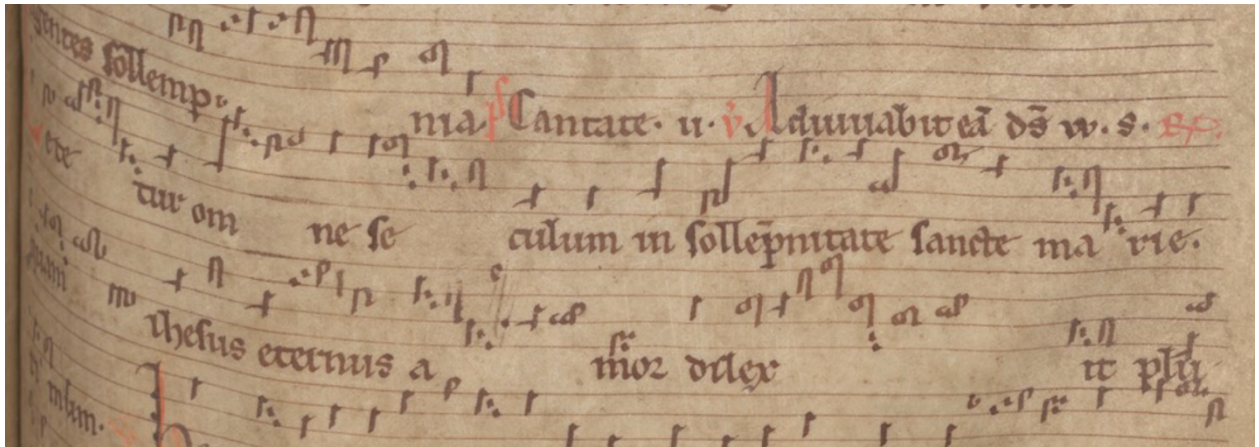 gentes sollemp
nia. ps Cantate. ii. v Adiuuabit eā ds̄ w. s. R
ete tur om ne se culum in sollep̄nitate sancte ma rie.
quam mo ihesus eternus a mor dilex it plu